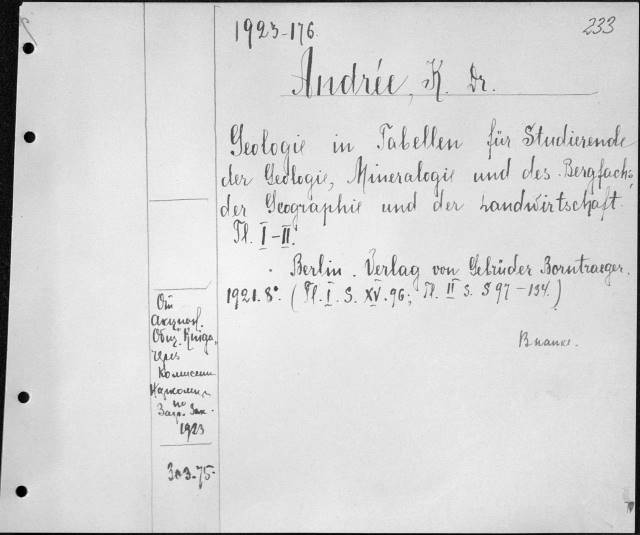 1923-176.
233
Andrée, K. Dr.
Geologie in Tabellen für Studierende
der Geologie, Mineralogie und des Bergfachs,
der Geographie und der Landwirtschaft.
Tl. I-II.
Berlin. Verlag von Gebrüder Borntraeger.
1921. 8°. (Tl. I. S. XV. 96; Tl. II S. S 97-134.)
От
Акцион.
Общ. Книга
через
Комиссии
по
1923
303-75.